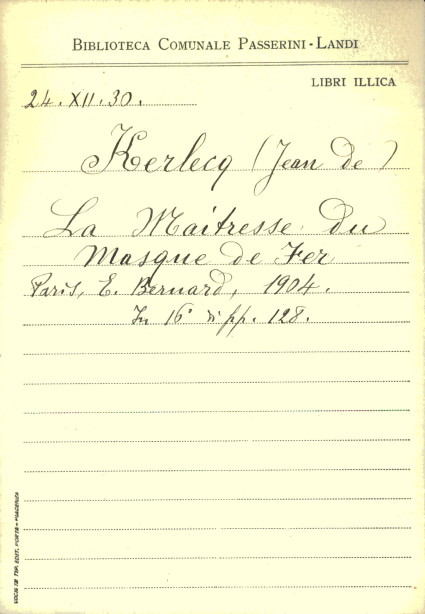 BIBLIOTECA COMUNALE PASSERINI-LANDI
LIBRI ILLICA
24. XII. 30.
Kerlecq (Jean de)
La Maitresse du
Masque de Fer
Paris, E. Bernard, 1904.
In 16° di pp. 128.
TIP. EDIT. PORTA - PIACENZA